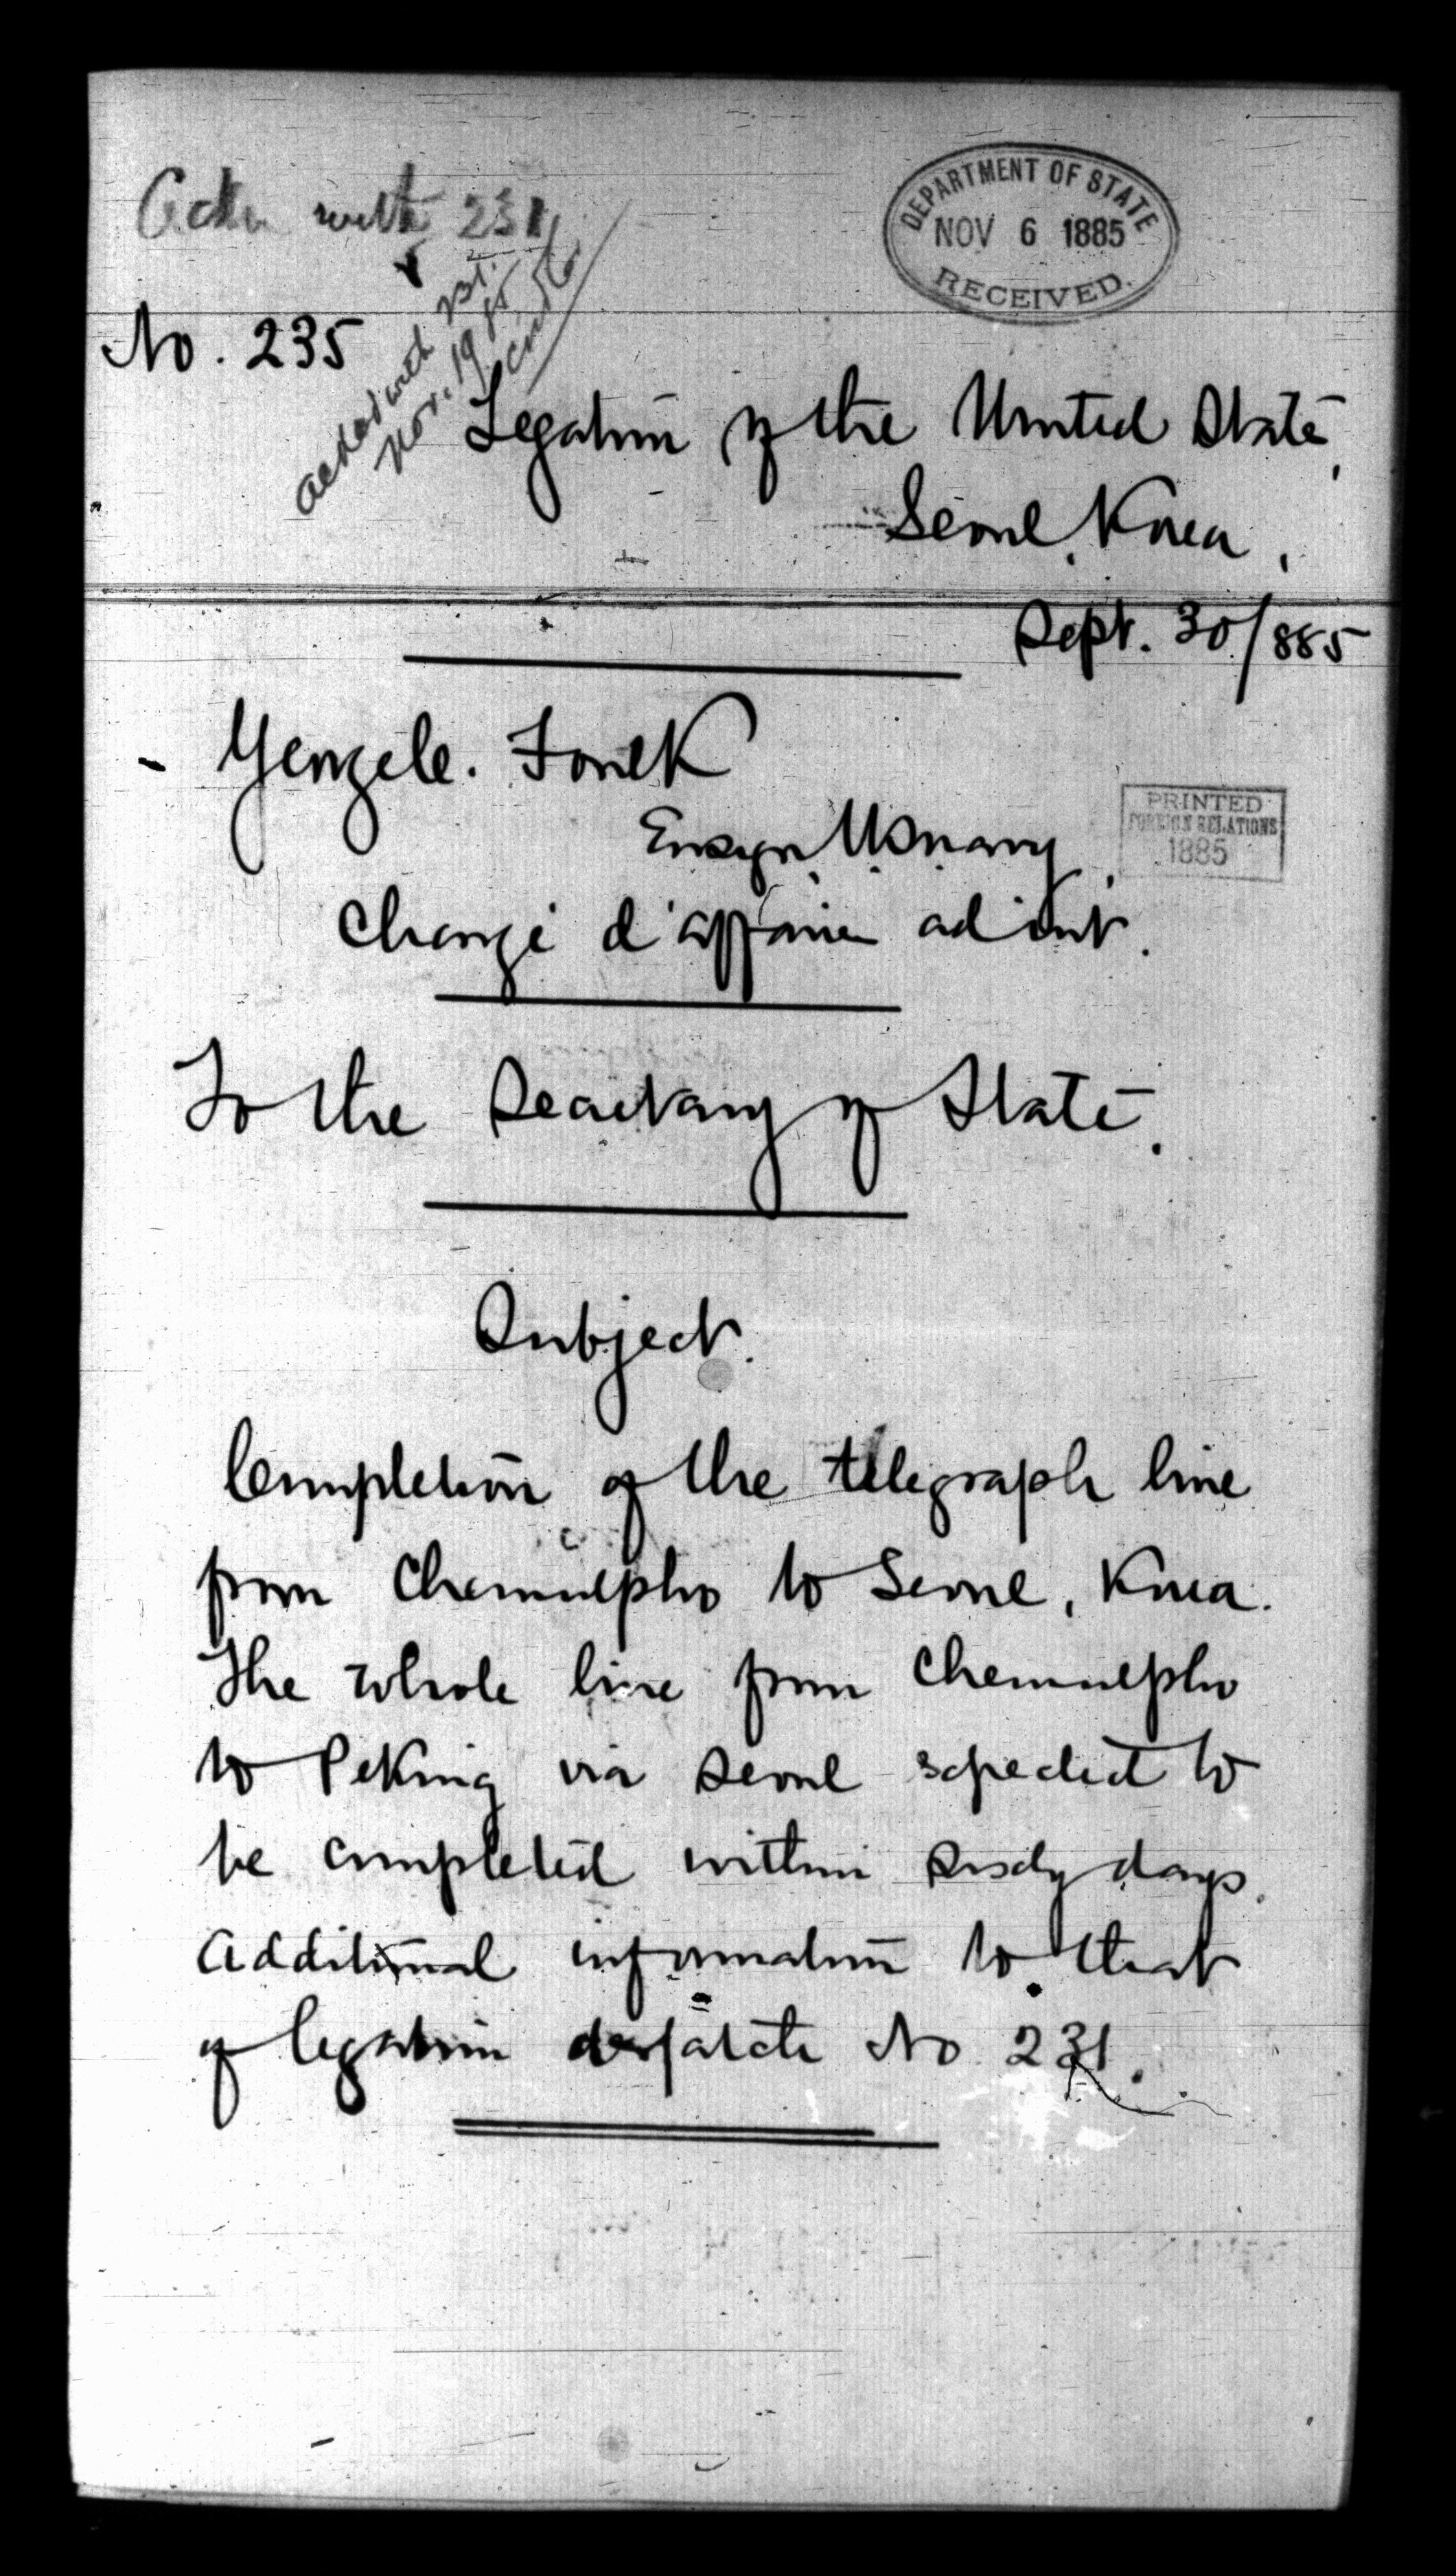 Ackn with 231
DEPARTMENT OF STATE
NOV 6 1885
RECEIVED.
No. 235
acked with 231.
Nov. 19 85
Legation of the United States,
Seoul, Korea,
Sept. 30/885
George C. Foulk
Ensign, U.S. navy,
PRINTED
FOREIGN RELATIONS
1885
Chargé d'affaires ad int.
To the Secretary of State.
Subject.
Completion of the telegraph line
from Chemulpho to Seoul, Korea.
The whole line from Chemulpho
to Peking via Seoul expected to
be completed within sixty days.
Additional information to that
of legation despatch No 231.